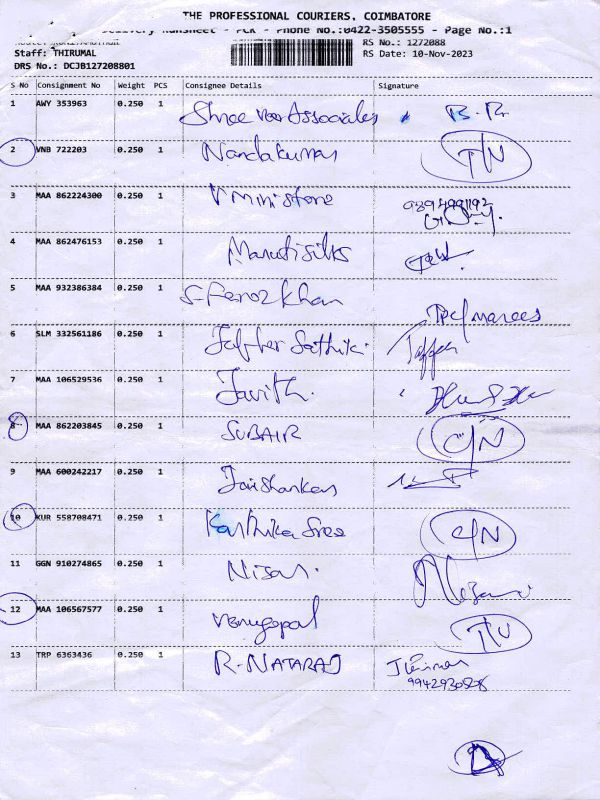 THE PROFESSIONAL COURIERS, COIMBATORE
Delivery RunSheet - PCR - Phone No.:0422-3505555 - Page No.:1
RS No.: 1272088
Staff: THIRUMAL RS Date: 10-Nov-2023
DRS No.: DCJB127208801
S No Consignment No Weight PCS Consignee Details Signature
1 AWY 353963 0.250 1 Shree Associates
2 VNB 722203 0.250 1 Nandakumar
3 MAA 862224300 0.250 1 V mini store
4 MAA 862476153 0.250 1 Maruti silks
5 MAA 932386384 0.250 1 S. Feroz khan
6 SLM 332561186 0.250 1 Sathik
7 MAA 106529536 0.250 1 Javith.
8 MAA 862203845 0.250 1 SUBAIR C/N
9 MAA 600242217 0.250 1 Jaishankar
10 KUR 558708471 0.250 1 Karthika Sree C/N
11 GGN 910274865 0.250 1 Nizar.
12 MAA 106567577 0.250 1 Venugopal
13 TRP 6363436 0.250 1 R. NATARAJ